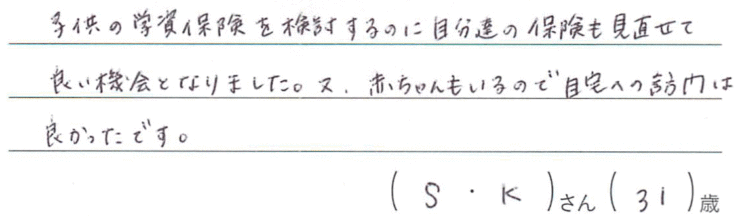 子供の学資保険を検討するのに自分達の保険も見直せて
良い機会となりました。又、赤ちゃんもいるので自宅への訪問は
良かったです。
( S・K )さん ( 31 )歳